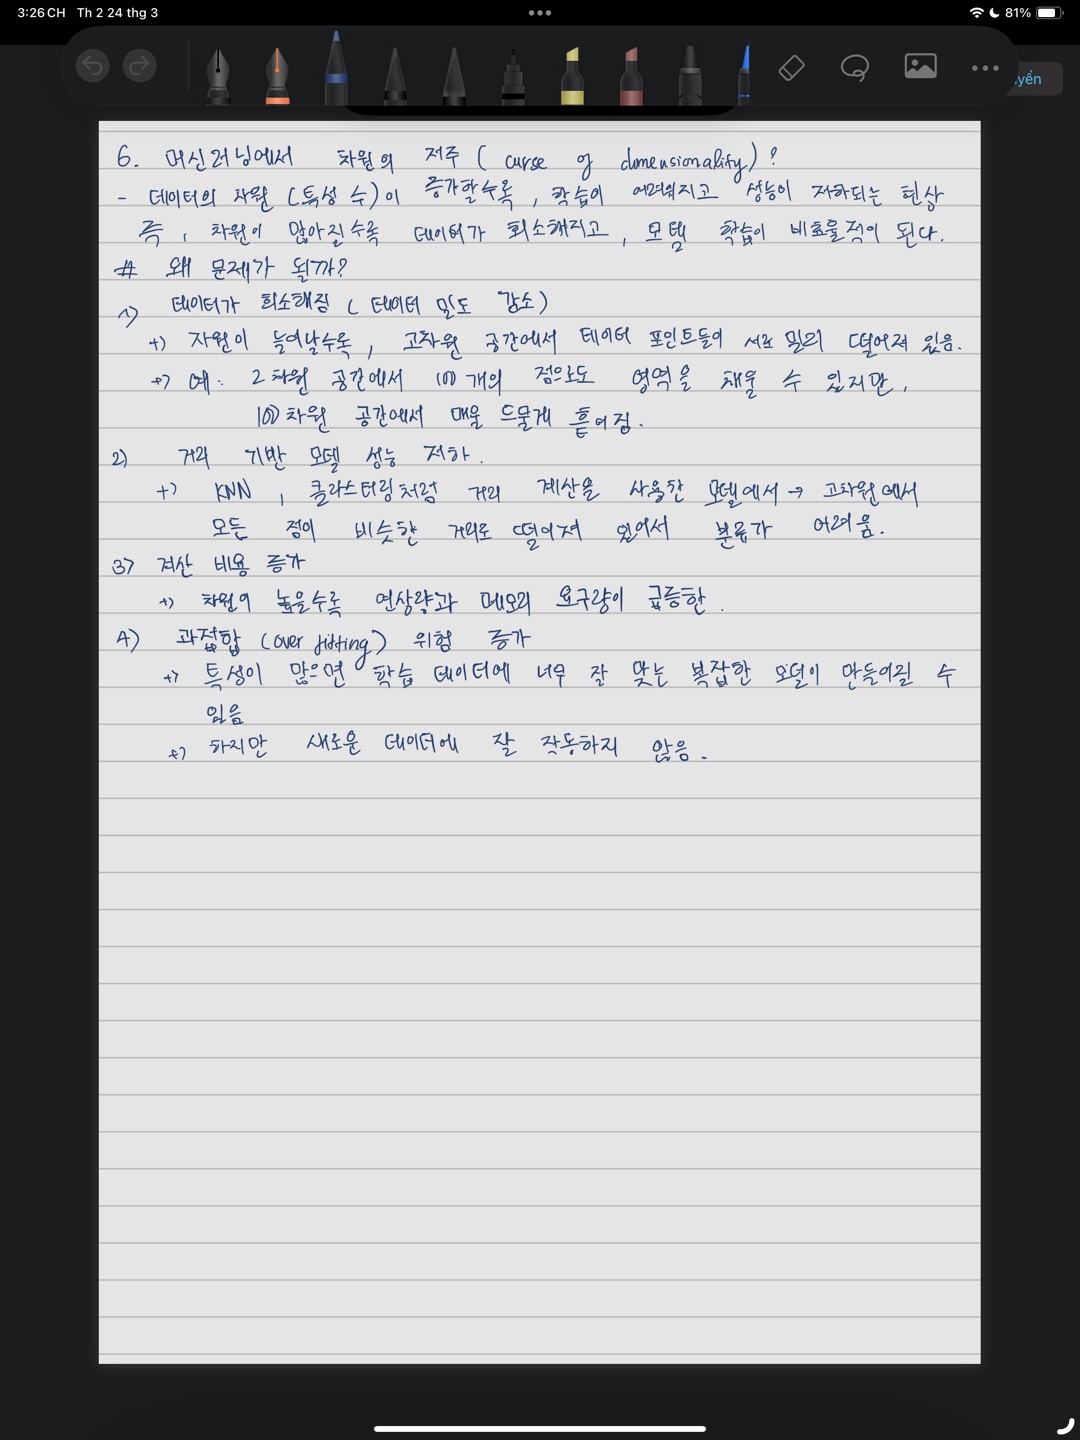 3:26 CH Th 2 24 thg 3
81%
yển
6. 머신러닝에서 차원의 저주 (curse of dimensionality)?
- 데이터의 차원 (특성 수)이 증가할수록, 학습이 어려워지고 성능이 저하되는 현상
즉, 차원이 많아질수록 데이터가 희소해지고, 모델 학습이 비효율적이 된다.
# 왜 문제가 될까?
1) 데이터가 희소해짐 (데이터 밀도 감소)
+) 차원이 늘어날수록, 고차원 공간에서 데이터 포인트들이 서로 멀리 떨어져 있음.
+) 예: 2차원 공간에서 100개의 점으로도 영역을 채울 수 있지만,
100차원 공간에서 매울 드물게 흩어짐.
2) 거리 기반 모델 성능 저하.
+) KNN, 클러스터링처럼 거리 계산을 사용한 모델에서 → 고차원에서
모든 점이 비슷한 거리로 떨어져 있어서 분류가 어려움.
3) 계산 비용 증가
+) 차원이 높을수록 연상량과 메모리 요구량이 급등한.
4) 과적합 (over fitting) 위험 증가
+) 특성이 많으면 학습 데이터에 너무 잘 맞는 복잡한 모델이 만들어질 수
있음
+) 하지만 새로운 데이터에 잘 작동하지 않음.